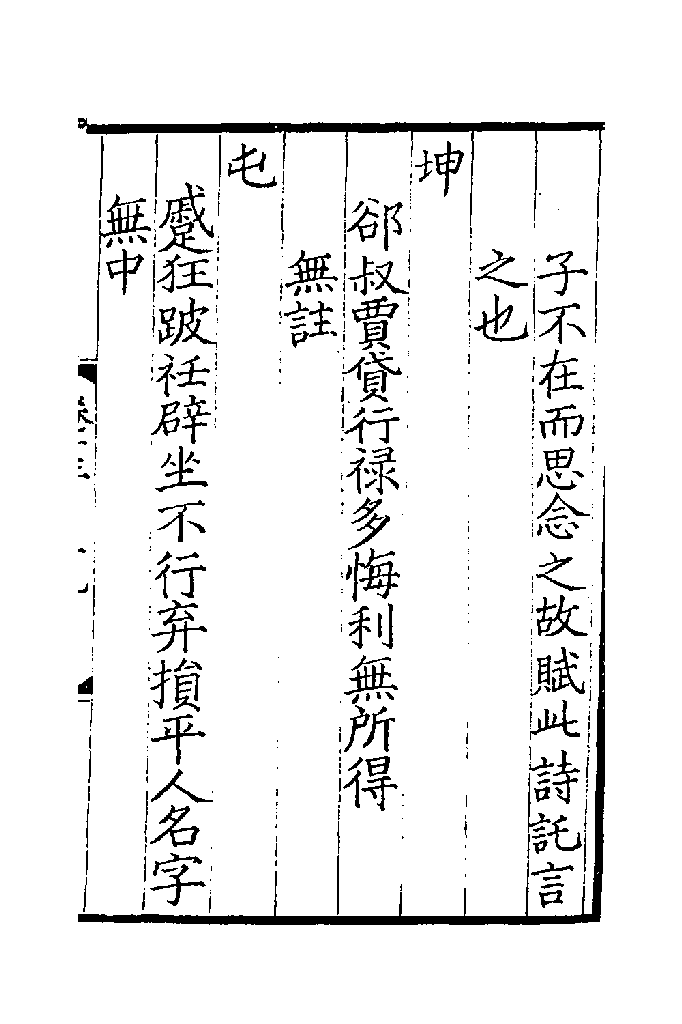 子不在而思念之故賦此詩託言
之也
坤
郤叔賈貸行禄多悔利無所得
無註
屯
蹙狂跛𥘵辟坐不行弃損平人名字
無中